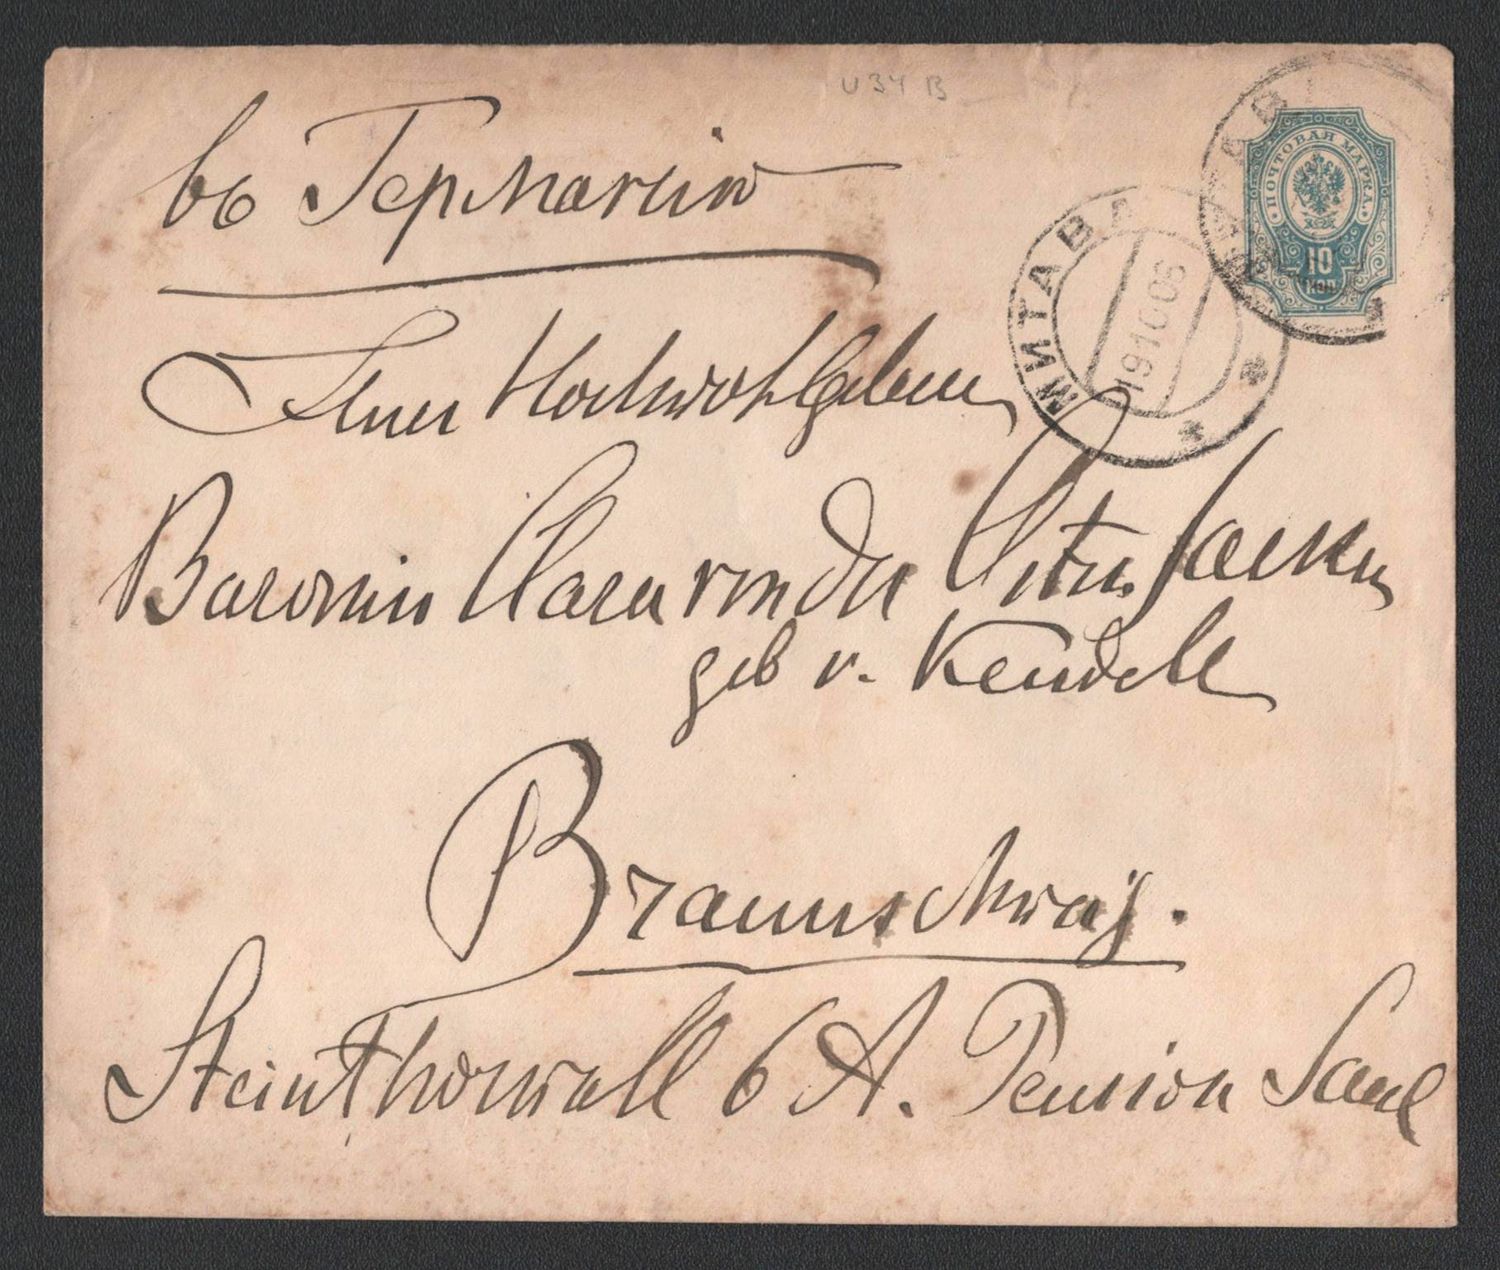 U 34 B
ПОЧТОВАЯ МАРКА
10
КОП.
МИТАВА
19 10 06
въ Германію
Ihrer Hochwohlgeboren
Baronin Clara von der Osten Sacken
geb v. Keudell
Braunschweig.
Steinthorwall 6 A. Pension Saml